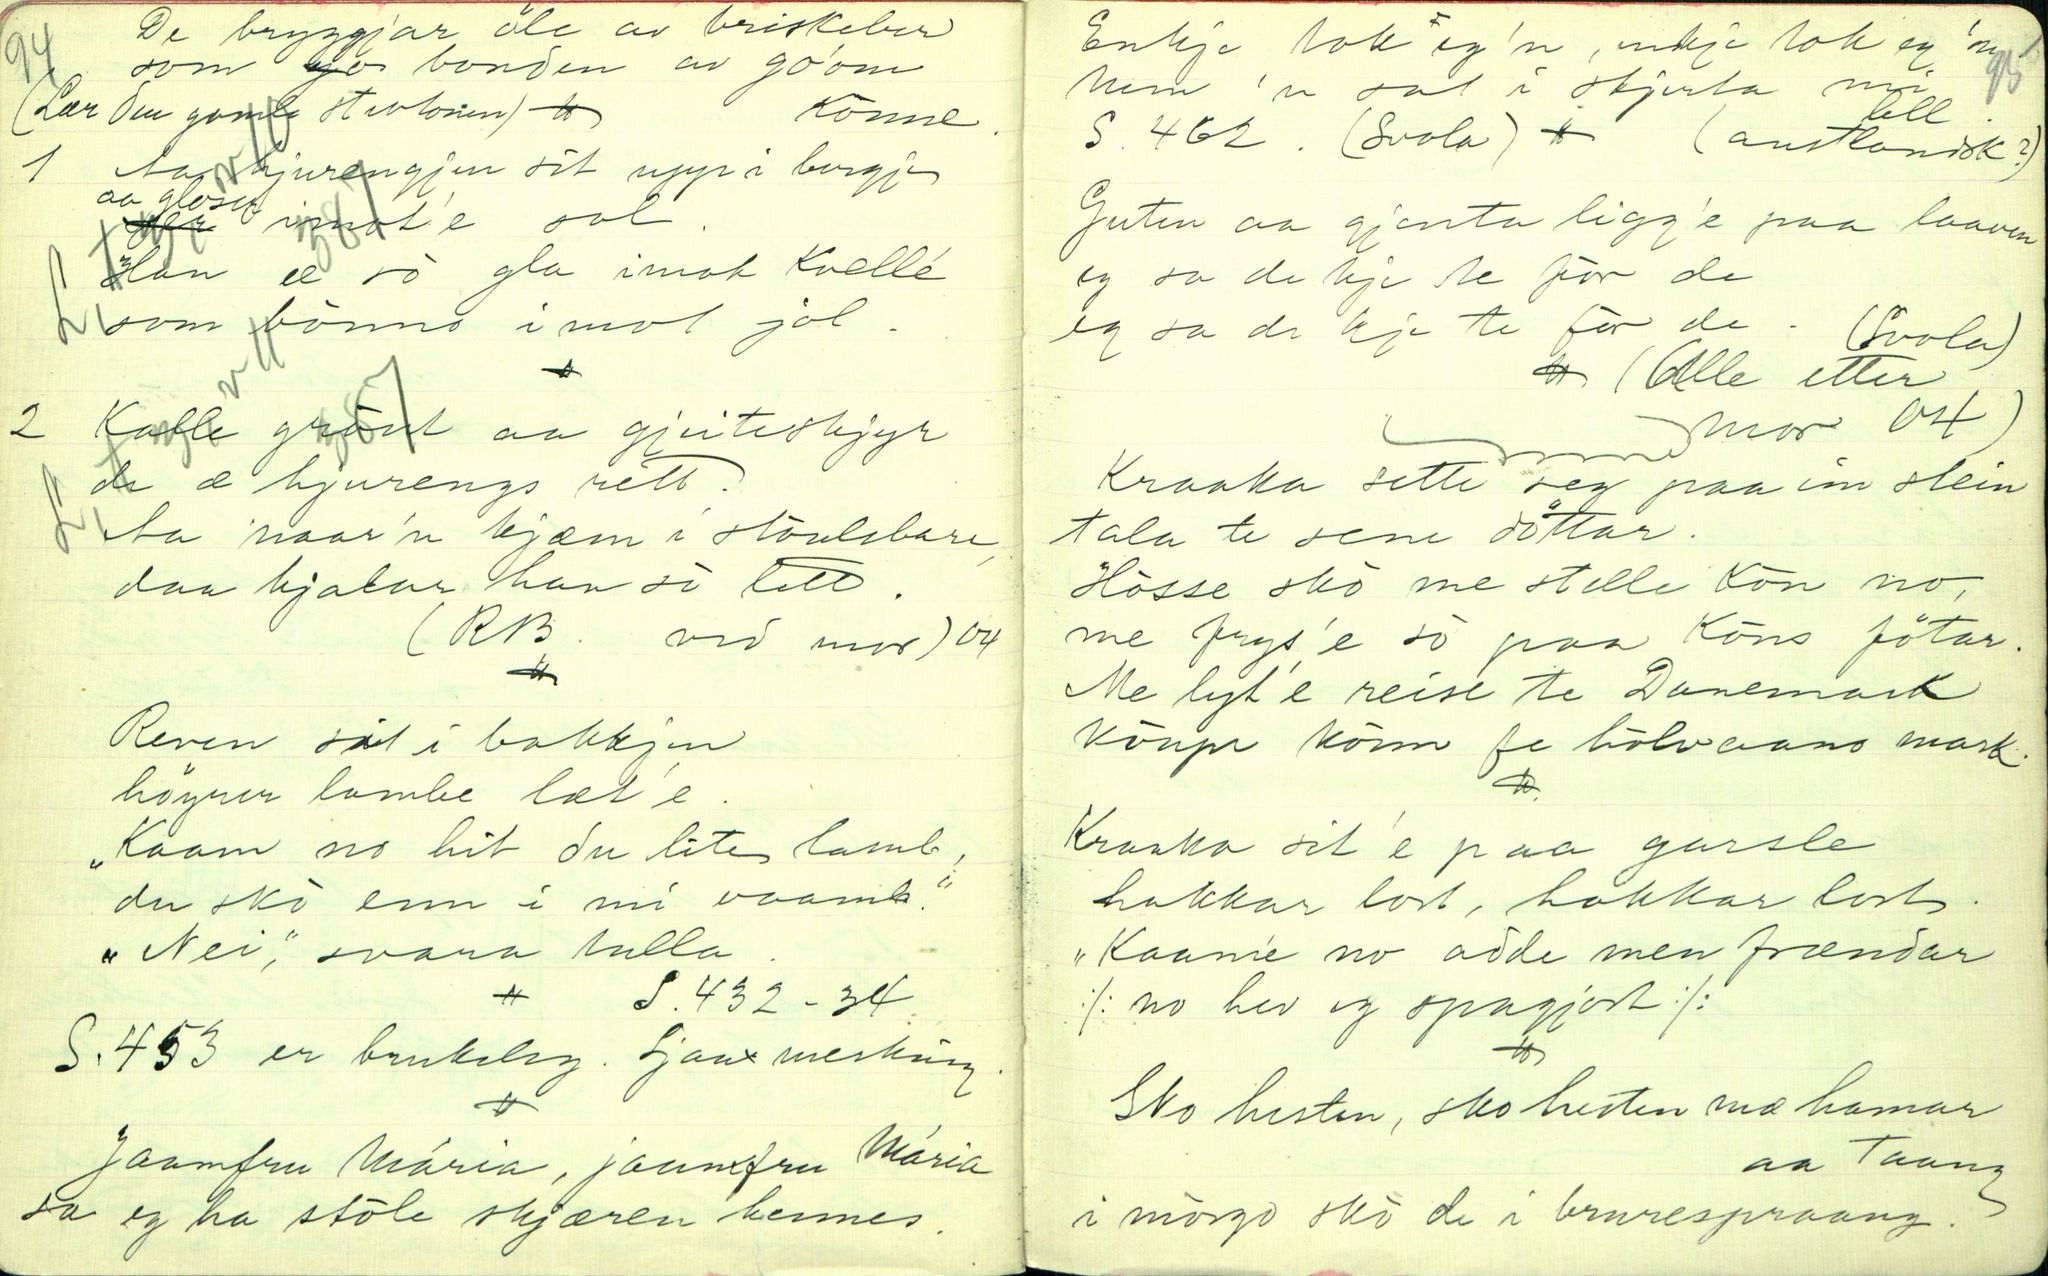 94
De bryggjar öle av briskeber
som bonden av go'om
könne.
(Lær den gamle stevtonen)
1 Aa hjurengjen sit uppi bergje
aa gloser imot'e sol.
Han æ sò gla imot kvellé
som bönno imot jol.
2 Kalle graut aa gjeiteskjyr
de æ hjurengs rett.
Aa naar'n kjæm i stöulsbare,
daa hjalar han sò lett.
(RB. ved mor) 04
Reven sit i bakkjen
höyrer lambe læt'e.
"Kaam no hit du lite lamb,
du skò enn i mi vaamb."
"Nei," svara tulla.
S. 432-34
S. 453 er brukeleg. Sjaa merking.
Jaamfru Mária, jaamfru Mária
sa eg ha stöle skjæren hennes.
95
Enkje tok eg'n, inkje tok eg'n
hem 'n sat i skjorta mi
lell.
S. 462. (Svola) (austlandsk?)
Guten aa gjenta ligg'e paa laaven
eg sa de kje te för de
eg sa de kje te för de. (Svola)
(Alle etter
mor 04)
Kraaka sette seg paa ein stein
tala te sene döttar.
Hösse skò me stelle kön no,
me frys'e sò paa köns fötar.
Me lyt'e reise te Danemark
köupe könn fe hölvaans mark.
Kraaka sit'e paa garsle
hakkar lort, hakkar lort.
"Kaam'e no adde men frændar
:/: no hev eg spagjort :/:
Sko hesten, sko hesten mæ hamar
aa Taang
i mòrgo skò de i brurespraang.